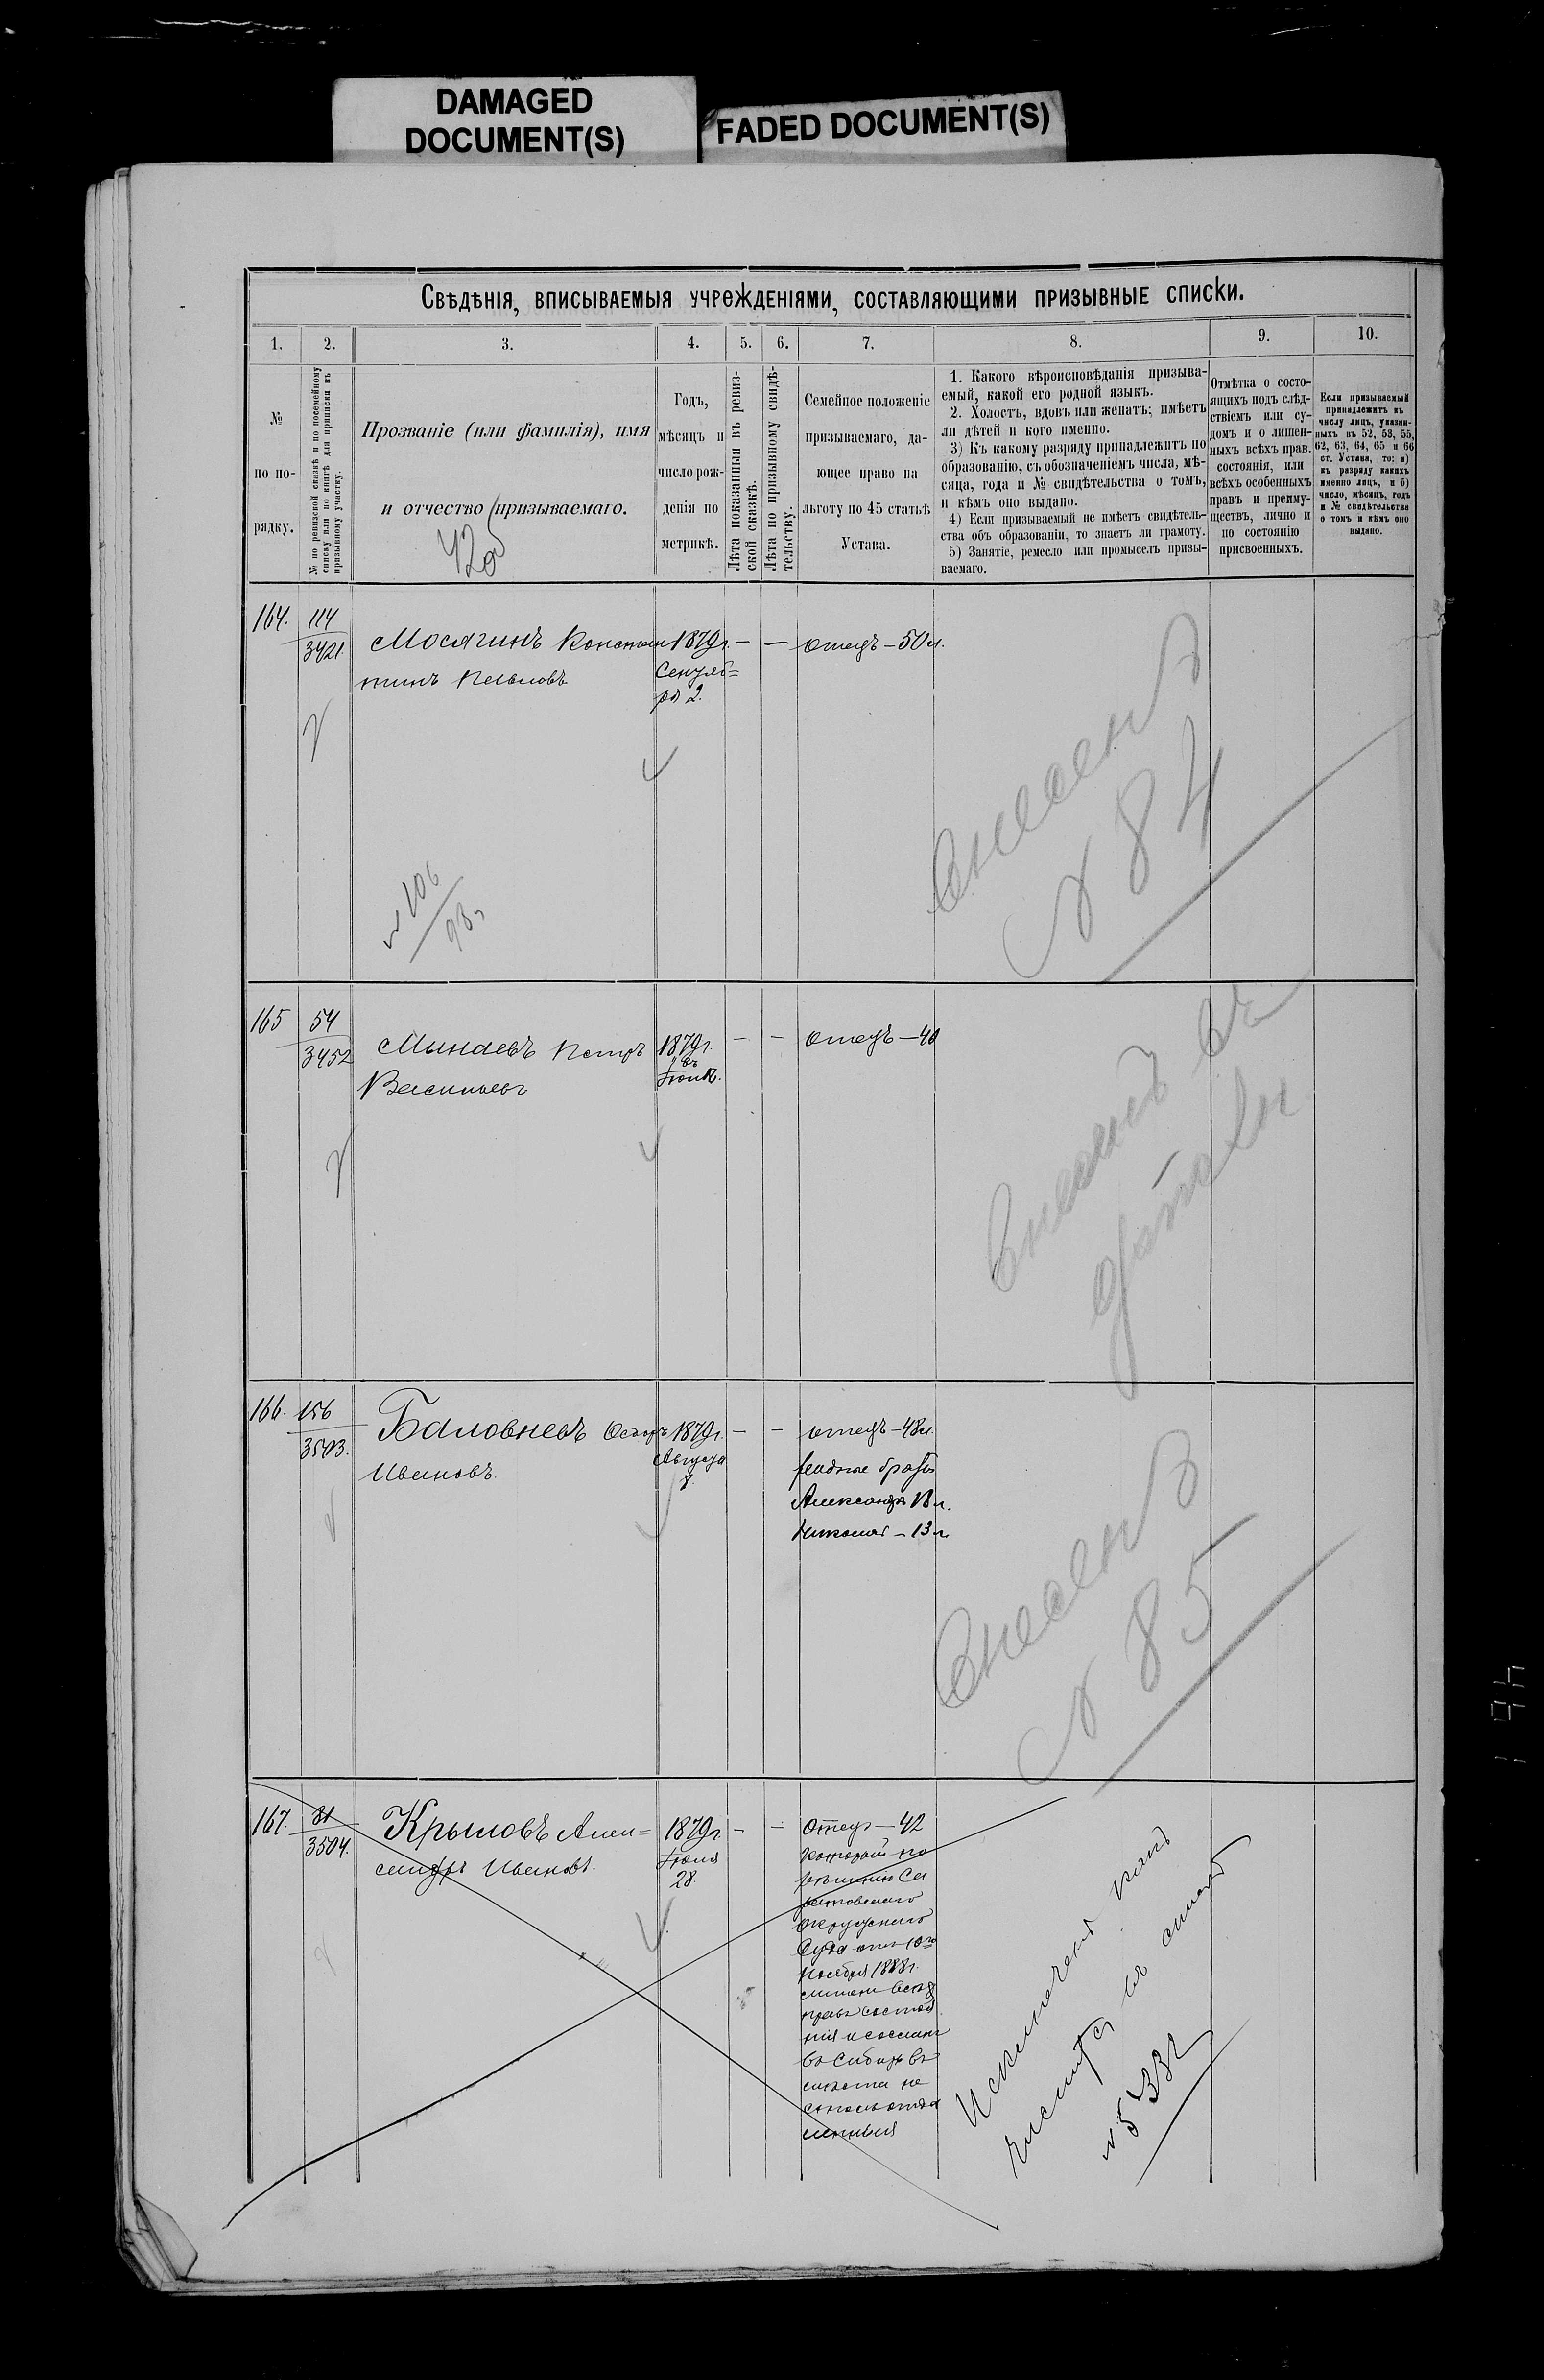 DAMAGED
DOCUMENT(S)
FADED DOCUMENT(S)
Свѣдѣнія, вписываемыя учрежденіями, составляющими призывные списки.
1.
2.
3.
4.
5.
6.
7.
8.
9.
10.
№
по по-
рядку.
№ по ревизской сказкѣ и по посемейному
списку или по книгѣ для приписки къ
призывному участку.
Прозваніе (или фамилія), имя
и отчество призываемаго.
Годъ,
мѣсяцъ и
число рож-
денія по
метрикѣ.
Лѣта показанныя въ ревиз-
ской сказкѣ.
Лѣта по призывному свидѣ-
тельству.
Семейное положеніе
призываемаго, да-
ющее право на
льготу по 45 статьѣ
Устава.
1. Какого вѣроисповѣданія призыва-
емый, какой его родной языкъ.
2. Холостъ, вдовъ или женатъ; имѣетъ
ли дѣтей и кого именно.
3) Къ какому разряду принадлежитъ по
образованію, съ обозначеніемъ числа, мѣ-
сяца, года и № свидѣтельства о томъ,
и кѣмъ оно выдано.
4) Если призываемый не имѣетъ свидѣтель-
ства объ образованіи, то знаетъ ли грамоту.
5) Занятіе, ремесло или промыселъ призы-
ваемаго.
Отмѣтка о состо-
ящихъ подъ слѣд-
ствіемъ или су-
домъ и о лишен-
ныхъ всѣхъ прав.
состоянія, или
всѣхъ особенныхъ
правъ и преиму-
ществъ, лично и
по состоянію
присвоенныхъ.
Если призываемый
принадлежитъ къ
числу лицъ, указан-
ныхъ въ 52, 53, 55,
62, 63, 64, 65 и 66
ст. Устава, то: а)
къ разряду какихъ
именно лицъ, и б)
число, мѣсяцъ, годъ
и № свидѣтельства
о томъ и кѣмъ оно
выдано.
164.
114
3421
Мосягинъ Констан
тинъ Павловъ
1879г.
Сентяб=
ря 2.
—
—
отецъ – 50 л.
№ 106
Внесенъ
№ 84
165
54
3452
Минаевъ Петръ
Васильевъ
1879г.
–
–
отецъ – 40
Внесенъ
166.
156
3503.
Баловневъ
Ивановъ.
1879г.
Августа
8.
–
–
отецъ – 48 л.
родные братья
Александръ 18 л.
Николай – 13 л.
Внесенъ
№ 85
167.
81
3504.
Крыловъ Алек=
сандръ Ивановъ.
1879г.
Іюля
28.
–
–
Отецъ – 42
который по
рѣшенію Са
ратовскаго
окружнаго
Суда отъ 10го
Ноября 1888г.
лишенъ всѣхъ
правъ состоя
нія и сосланъ
въ Сибирь
Исключенъ какъ
числится въ
№ 5332